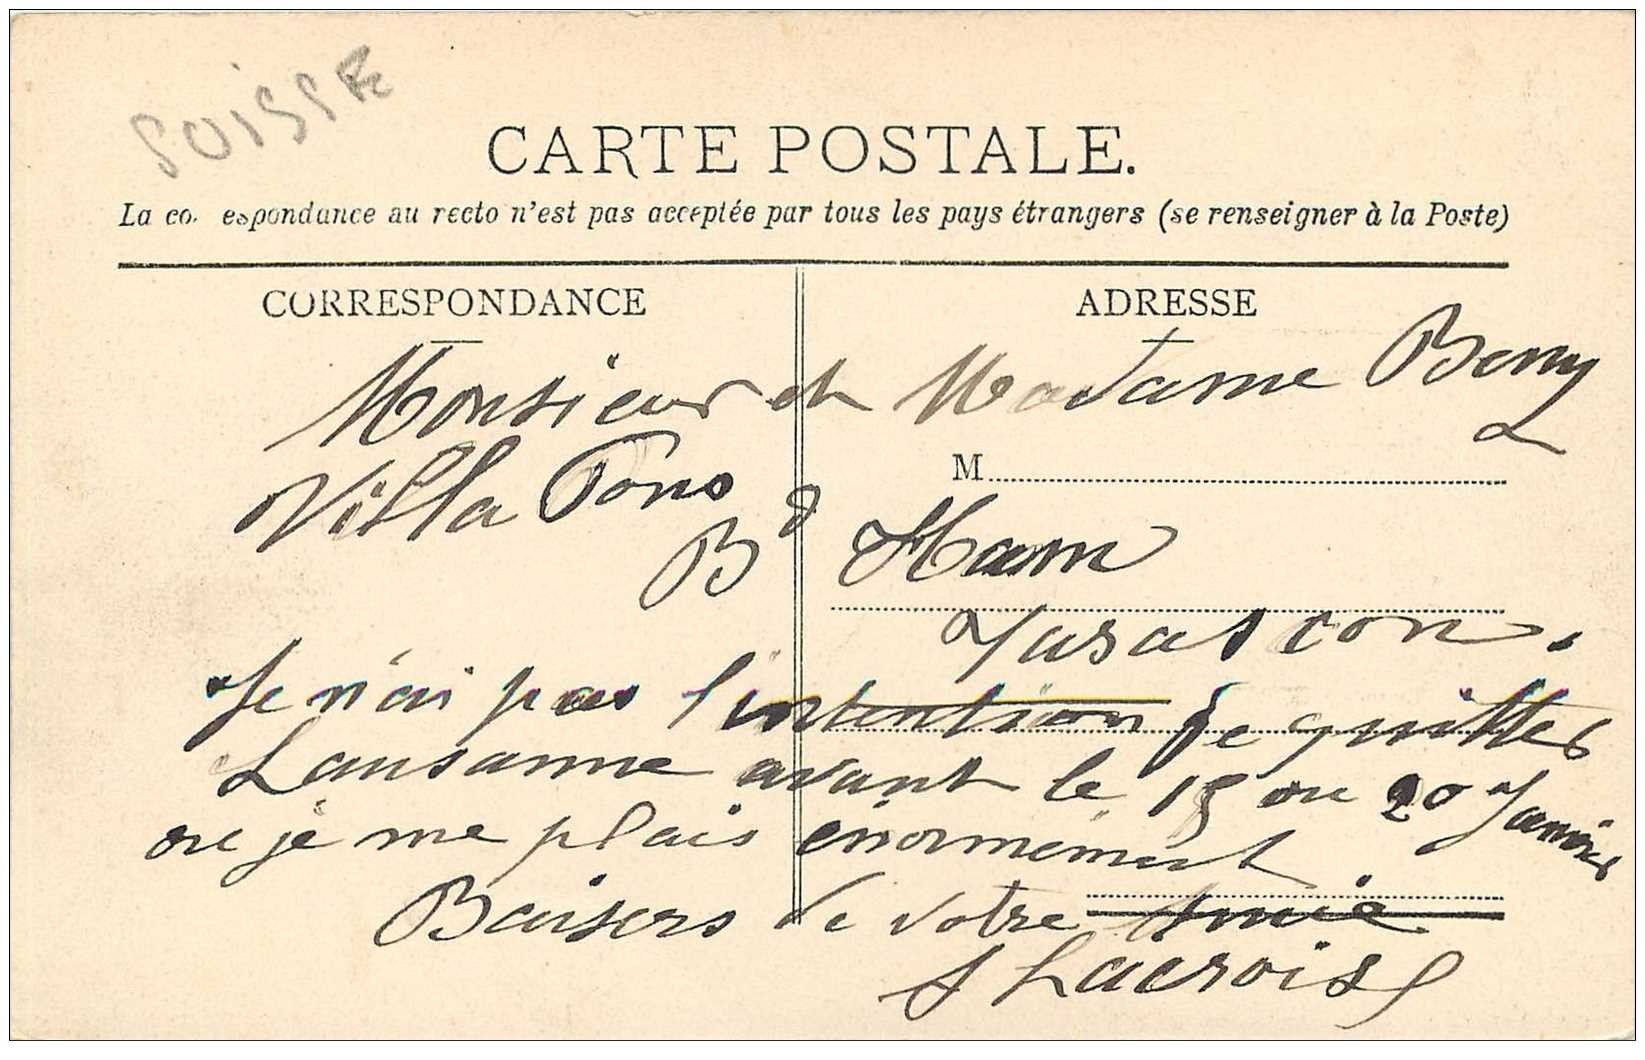 SUISSE
CARTE POSTALE.
La co. espondance au recto n'est pas acceptée par tous les pays étrangers (se renseigner à la Poste)
CORRESPONDANCE
ADRESSE
Monsieur et Madame Bony
M
Villa Pons
Bd Ham
Tarascon.
Je n'ai pas l'intention de quitter
Lausanne avant le 15 ou 20 Janvier
ou je me plais énormément.
Baisers de votre Amie
Lacroix